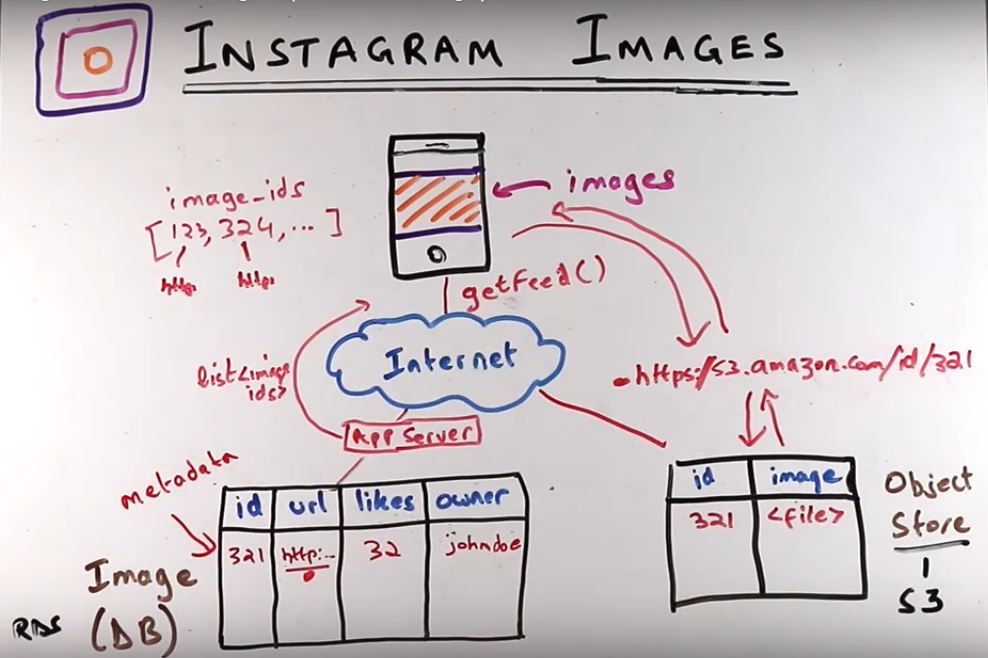 INSTAGRAM IMAGES
image_ids
[123, 324, ... ]
http: http:
images
getFeed()
Internet
list<image
ids>
App Server
https://s3.amazon.com/id/321
metadata
id url likes owner
321 http:-- 32 johndoe
Image
(DB)
RDS
id image
321 <file>
Object
Store
S3